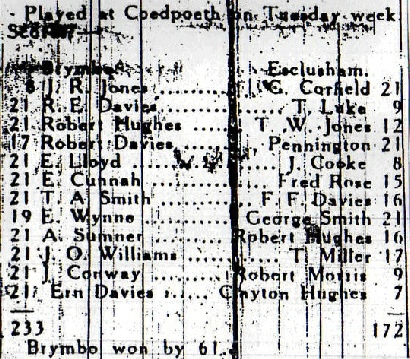 Played at Coedpoeth on Tuesday week.
Brymbo. Esclusham.
8 J. R. Jones ...... G. Corfield 21
21 R. E. Davies ...... T. Luke 9
21 Robert Hughes ...... T. W. Jones 12
17 Robert Davies ...... Pennington 21
21 E. Lloyd ...... J. Cooke 8
21 E. Cunnah ...... Fred Rose 15
21 T. A. Smith ...... F. F. Davies 16
19 E. Wynne ...... George Smith 21
21 A. Sumner ...... Robert Hughes 16
21 J. O. Williams ...... T. Miller 17
21 J. Conway ...... Robert Morris 9
21 Ern Davies ...... Clayton Hughes 7
233 172
Brymbo won by 61.